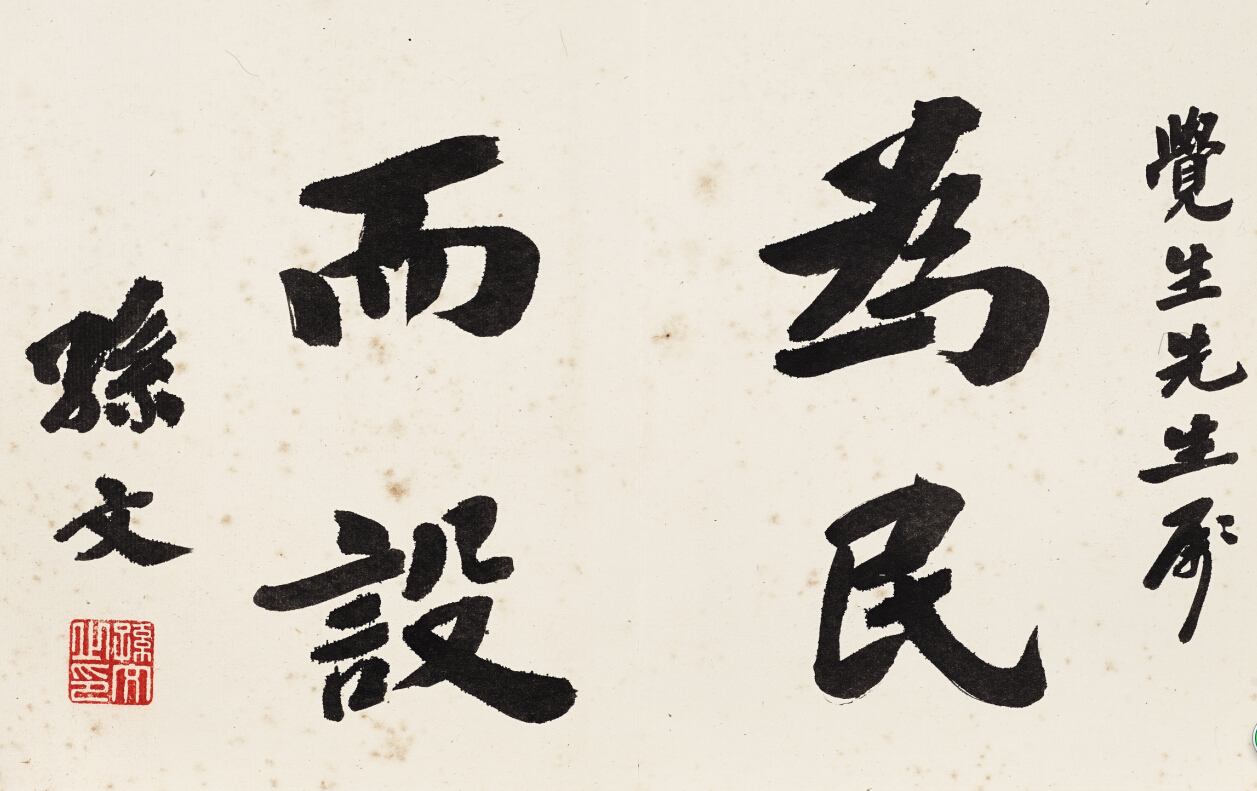 覺生先生屬
為民
而設
孫文
孫文之印